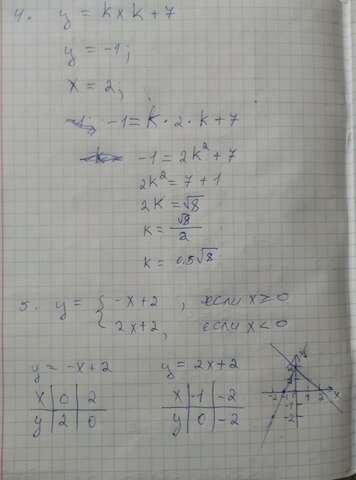 4. y = kxk+7
y = -1;
x = 2;
-1 = k·2·k+7
-1 = 2k²+7
2k² = 7+1
2k = √8
k = √8/2
k = 0,5√8
5. y = { -x+2 , если x ≥ 0
2x+2, если x < 0
y = -x+2 y = 2x+2
x 0 2 x -1 -2
y 2 0 y 0 -2